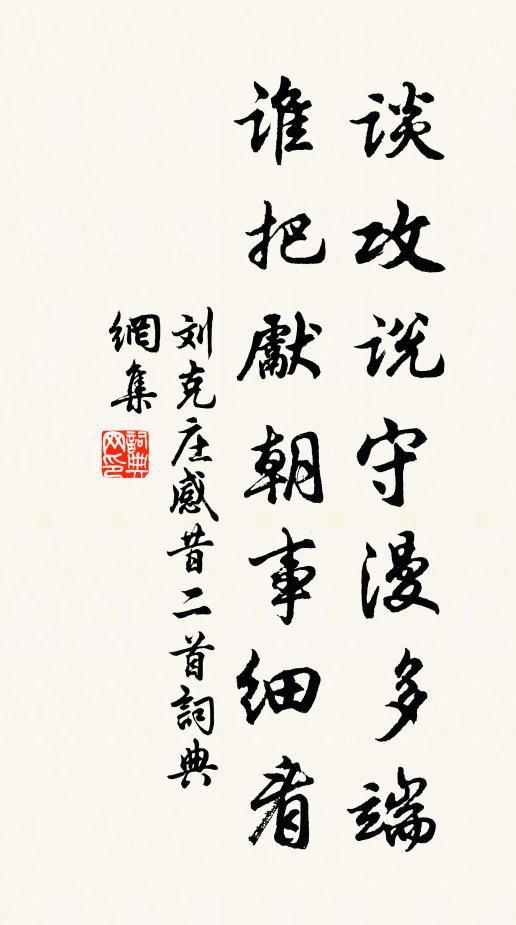 谈攻说守漫多端
谁把獻朝事细看
刘克庄感昔二首詞典
網集
詞典
网印